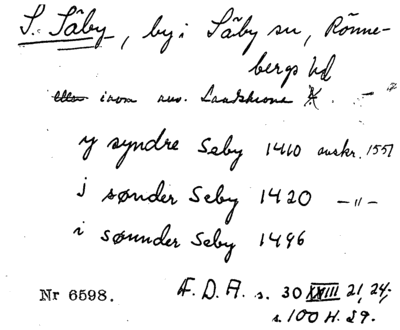 S. Säby, by i Säby sn, Rönne-
bergs hd
eller inom nuv. Landskrona
y syndre Seby 1410 avskr. 1557
j sønder Seby 1420 — " —
i sønnder Seby 1496
Nr 6598. Æ. D. A. s. 30 XXIII 21, 24;
s. 100 H. 29.